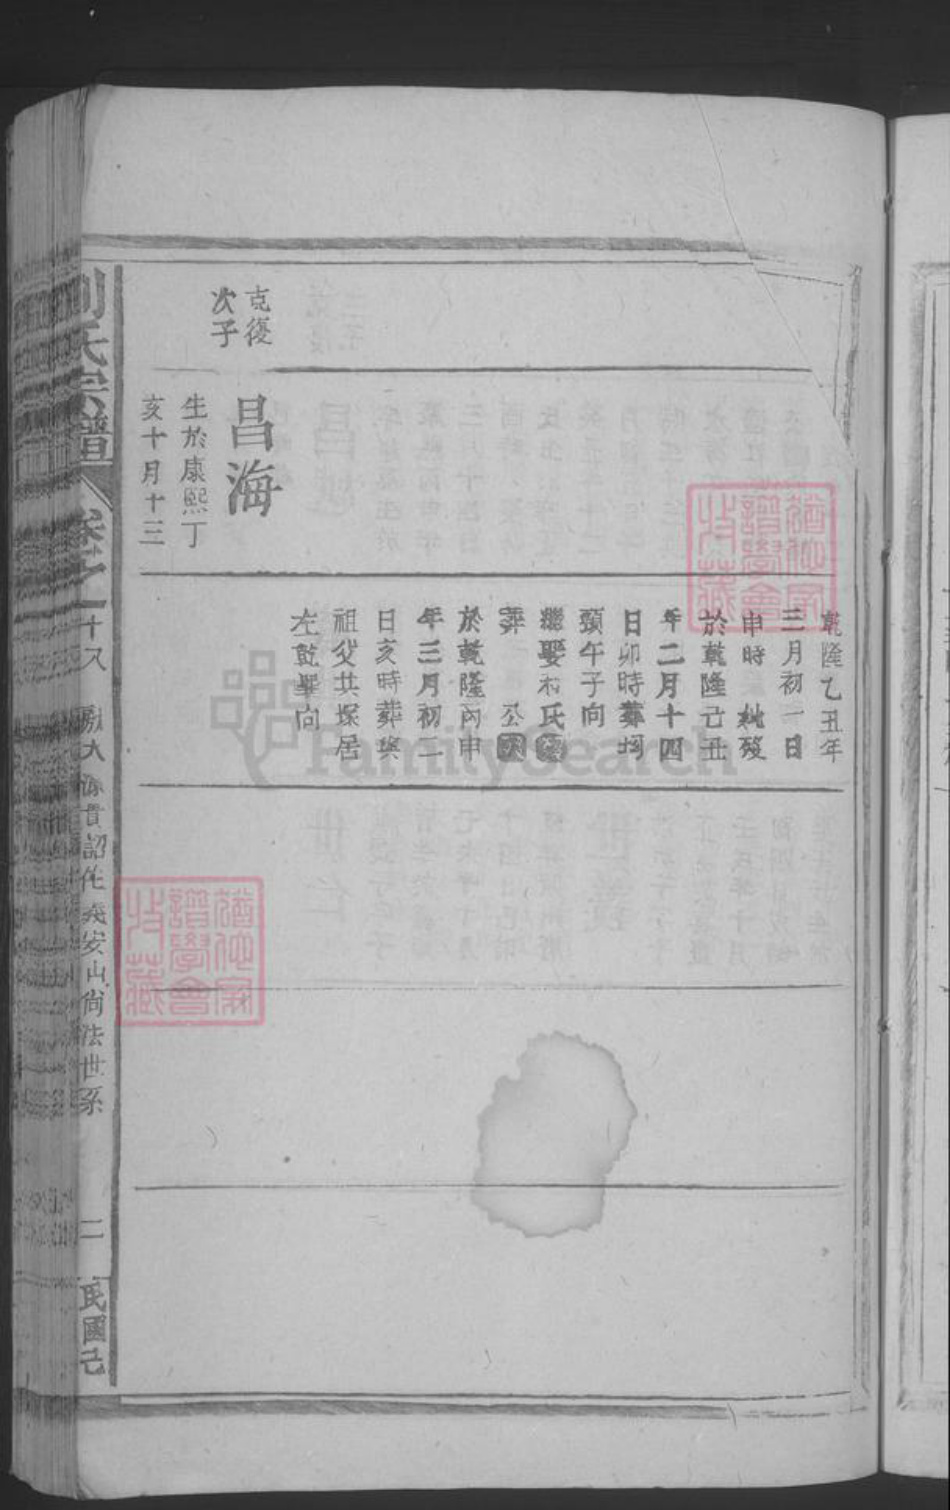 乾隆乙丑年
三月初一日
申時 歿
於乾隆己丑
年二月十四
日卯時葬均
頸午子向
繼娶 氏
葬 公
於乾隆丙申
年三月初二
日亥時葬與
祖父共塚居
左乾巽向
克復
次子
昌海
生於康熙丁
亥十月十三
劉氏宗譜
卷之一十八
大 貫韶 安山尚法世系
二
民國己
譜學會
收藏
譜學會
收藏
FamilySearch